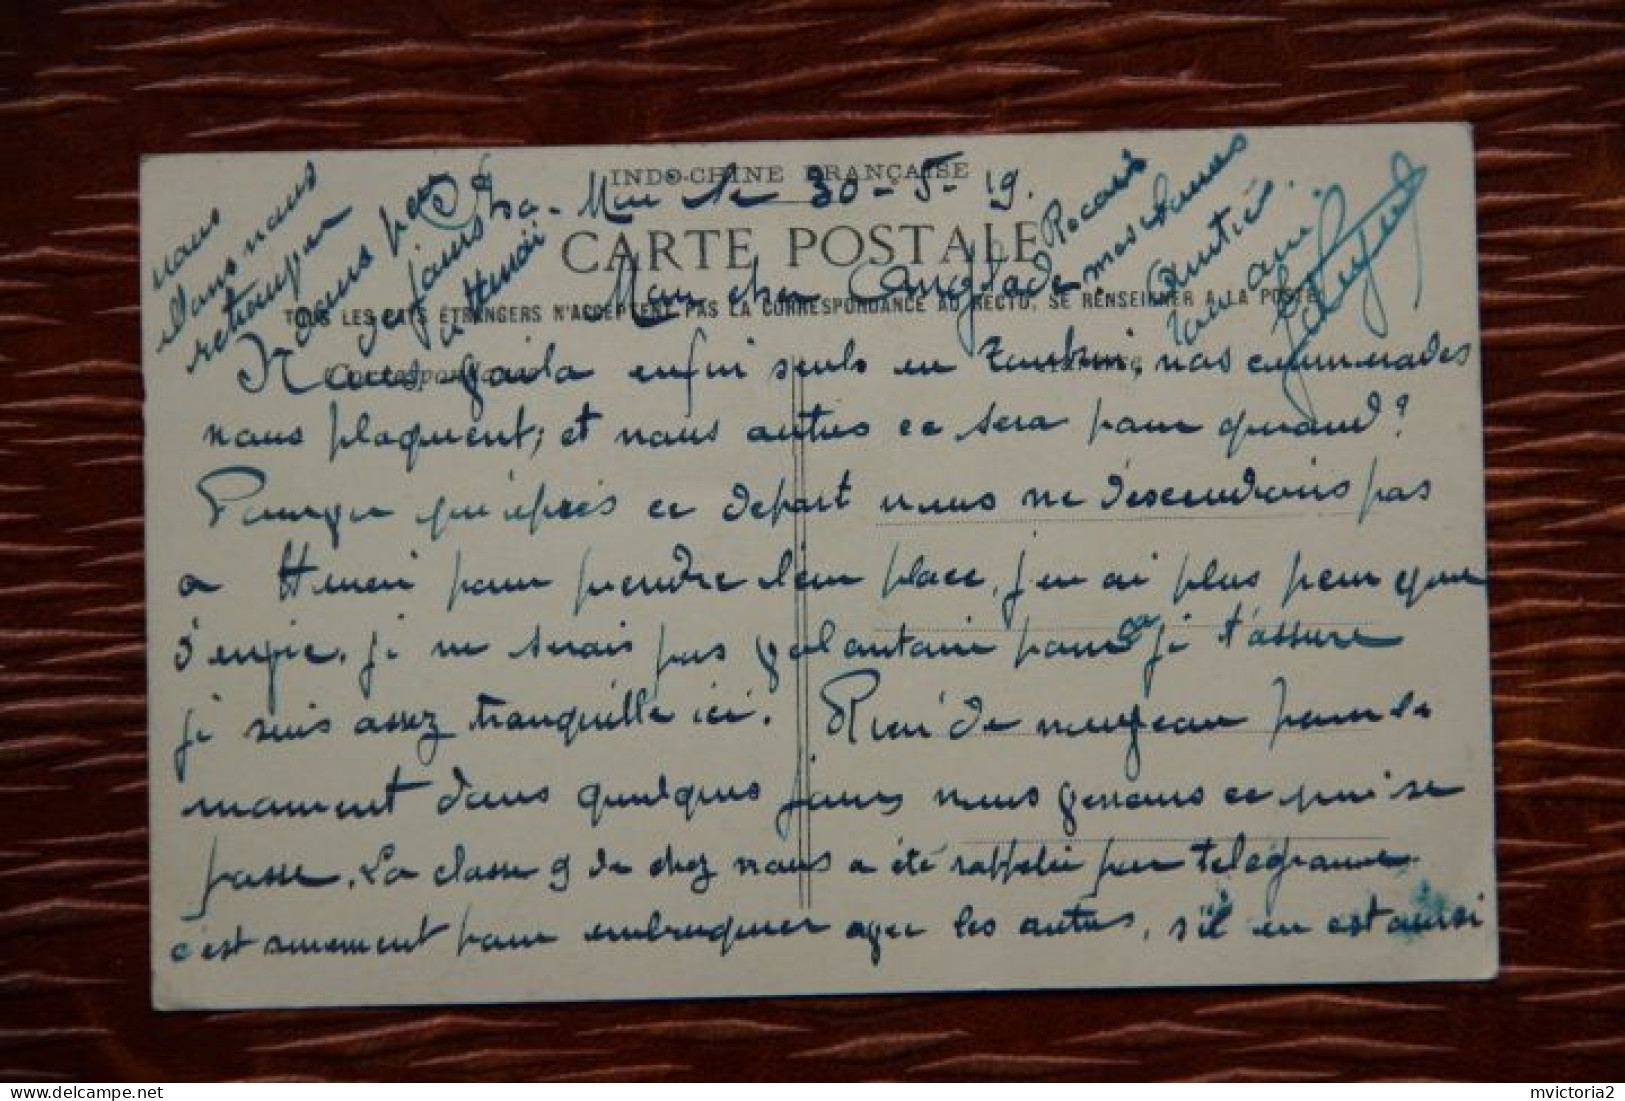 INDO-CHINE FRANÇAISE
le 30-5-19.
CARTE POSTALE
Mon cher Anglade
TOUS LES PAYS ÉTRANGERS N'ACCEPTENT PAS LA CORRESPONDANCE AU RECTO, SE RENSEIGNER A LA POSTE
Correspondance
Nous voila enfin seuls au Tonkin, nos cammarades
nous plaquent; et nous autres ce sera pour quand?
Pourvu qu'après ce depart nous ne descendrons pas
a Hanoi pour prendre leur place, j'en ai plus peur que
d'envie. je ne serais pas volontaire pour ça je t'assure
je suis assez tranquille ici. Rien de nouveau pour le
moment dans quelques jours nous verrons ce qui se
passe. La classe 9 de chez nous a été rappelée par télégramme
c'est surement pour embarquer avec les autres, s'il en est ainsi
nous
allons nous
retrouver
dans pas
jours
a Hanoi
Recois
mes
ton ami